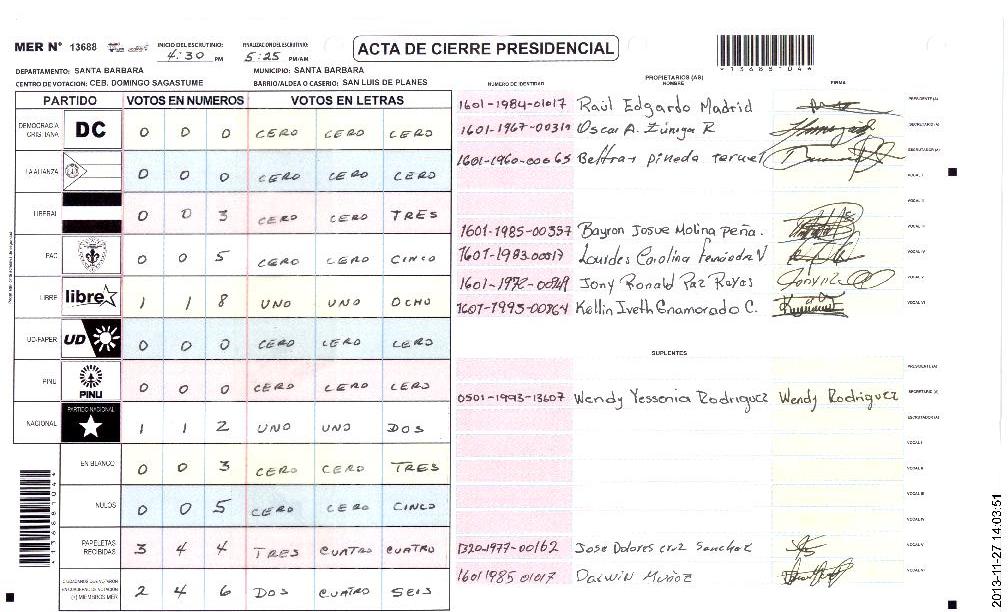 MER N° 13688 INICIO DEL ESCRUTINIO: 4:30 PM FINALIZACION DEL ESCRUTINIO: 5:25 PM/AM ACTA DE CIERRE PRESIDENCIAL
DEPARTAMENTO: SANTA BARBARA MUNICIPIO: SANTA BARBARA
CENTRO DE VOTACION: CEB. DOMINGO SAGASTUME BARRIO/ALDEA O CASERIO: SAN LUIS DE PLANES
PARTIDO VOTOS EN NUMEROS VOTOS EN LETRAS
DEMOCRACIA CRISTIANA DC 0 0 0 CERO CERO CERO
LA ALIANZA 0 0 0 CERO CERO CERO
LIBERAL 0 0 3 CERO CERO TRES
PAC 0 0 5 CERO CERO CINCO
LIBRE libre 1 1 8 UNO UNO OCHO
UD-FAPER UD 0 0 0 CERO CERO CERO
PINU PINU 0 0 0 CERO CERO CERO
NACIONAL PARTIDO NACIONAL 1 1 2 UNO UNO DOS
EN BLANCO 0 0 3 CERO CERO TRES
NULOS 0 0 5 CERO CERO CINCO
PAPELETAS RECIBIDAS 3 4 4 TRES CUATRO CUATRO
CIUDADANOS QUE VOTARON EN CUADERNO DE VOTACION (+) MIEMBROS MER 2 4 6 DOS CUATRO SEIS
PROPIETARIOS (AS)
NUMERO DE IDENTIDAD NOMBRE FIRMA
1601-1984-01017 Raúl Edgardo Madrid PRESIDENTE (A)
Oscar A. Zúniga R SECRETARIO (A)
1601-1960-00065 Beltran pineda teruel ESCRUTADOR (A)
VOCAL I
VOCAL II
1601-1985-00357 Bayron Josue Molina peña. VOCAL III
1601-1983-00017 Lourdes Carolina VOCAL IV
Jony Ronald Paz Reyes VOCAL V
1601-1993-00764 Kellin Iveth Enamorado C. VOCAL VI
SUPLENTES
PRESIDENTE (A)
0501-1993-13607 Wendy Yessenia Rodriguez Wendy Rodriguez SECRETARIO (A)
ESCRUTADOR (A)
VOCAL I
VOCAL II
VOCAL III
VOCAL IV
1320-1977-00162 Jose Dolores cruz Sanchez VOCAL V
1601 1985 01017 Darwin Muñoz VOCAL VI
2013-11-27 14:03:51